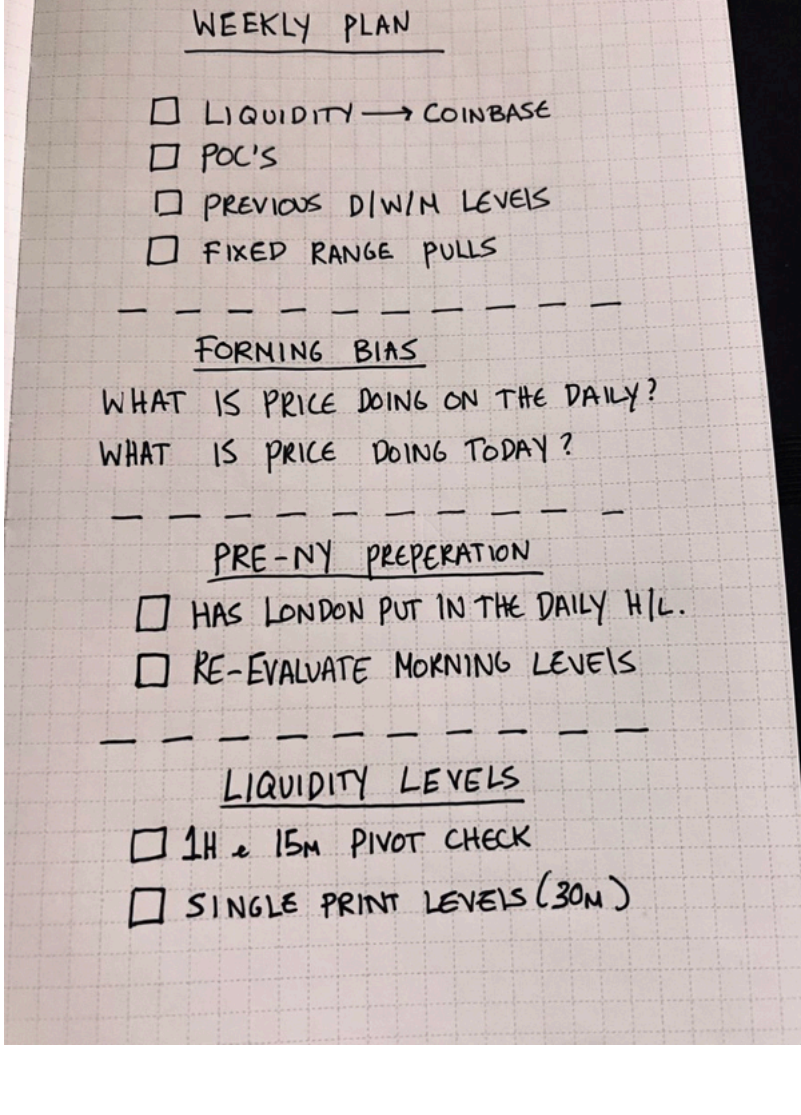 WEEKLY PLAN
LIQUIDITY → COINBASE
POC'S
PREVIOUS D/W/M LEVELS
FIXED RANGE PULLS
FORMING BIAS
WHAT IS PRICE DOING ON THE DAILY?
WHAT IS PRICE DOING TODAY?
PRE-NY PREPERATION
HAS LONDON PUT IN THE DAILY H/L.
RE-EVALUATE MORNING LEVELS
LIQUIDITY LEVELS
1H & 15M PIVOT CHECK
SINGLE PRINT LEVELS (30M)